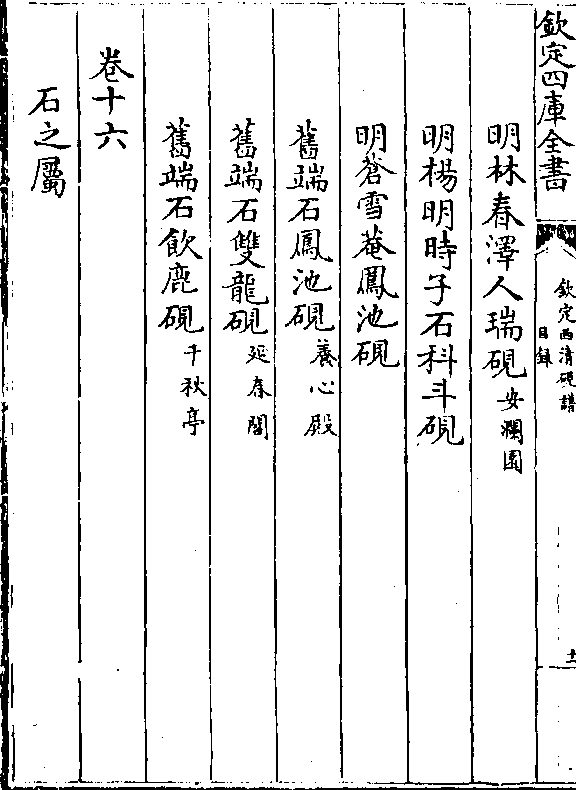 欽定四庫全書
欽定西清硯譜
目錄
十一
明林春澤人瑞硯 安瀾園
明楊明時子石科斗硯
明蒼雪菴鳳池硯
舊端石鳳池硯 養心殿
舊端石雙龍硯 延春閣
舊端石飲鹿硯 千秋亭
卷十六
石之屬